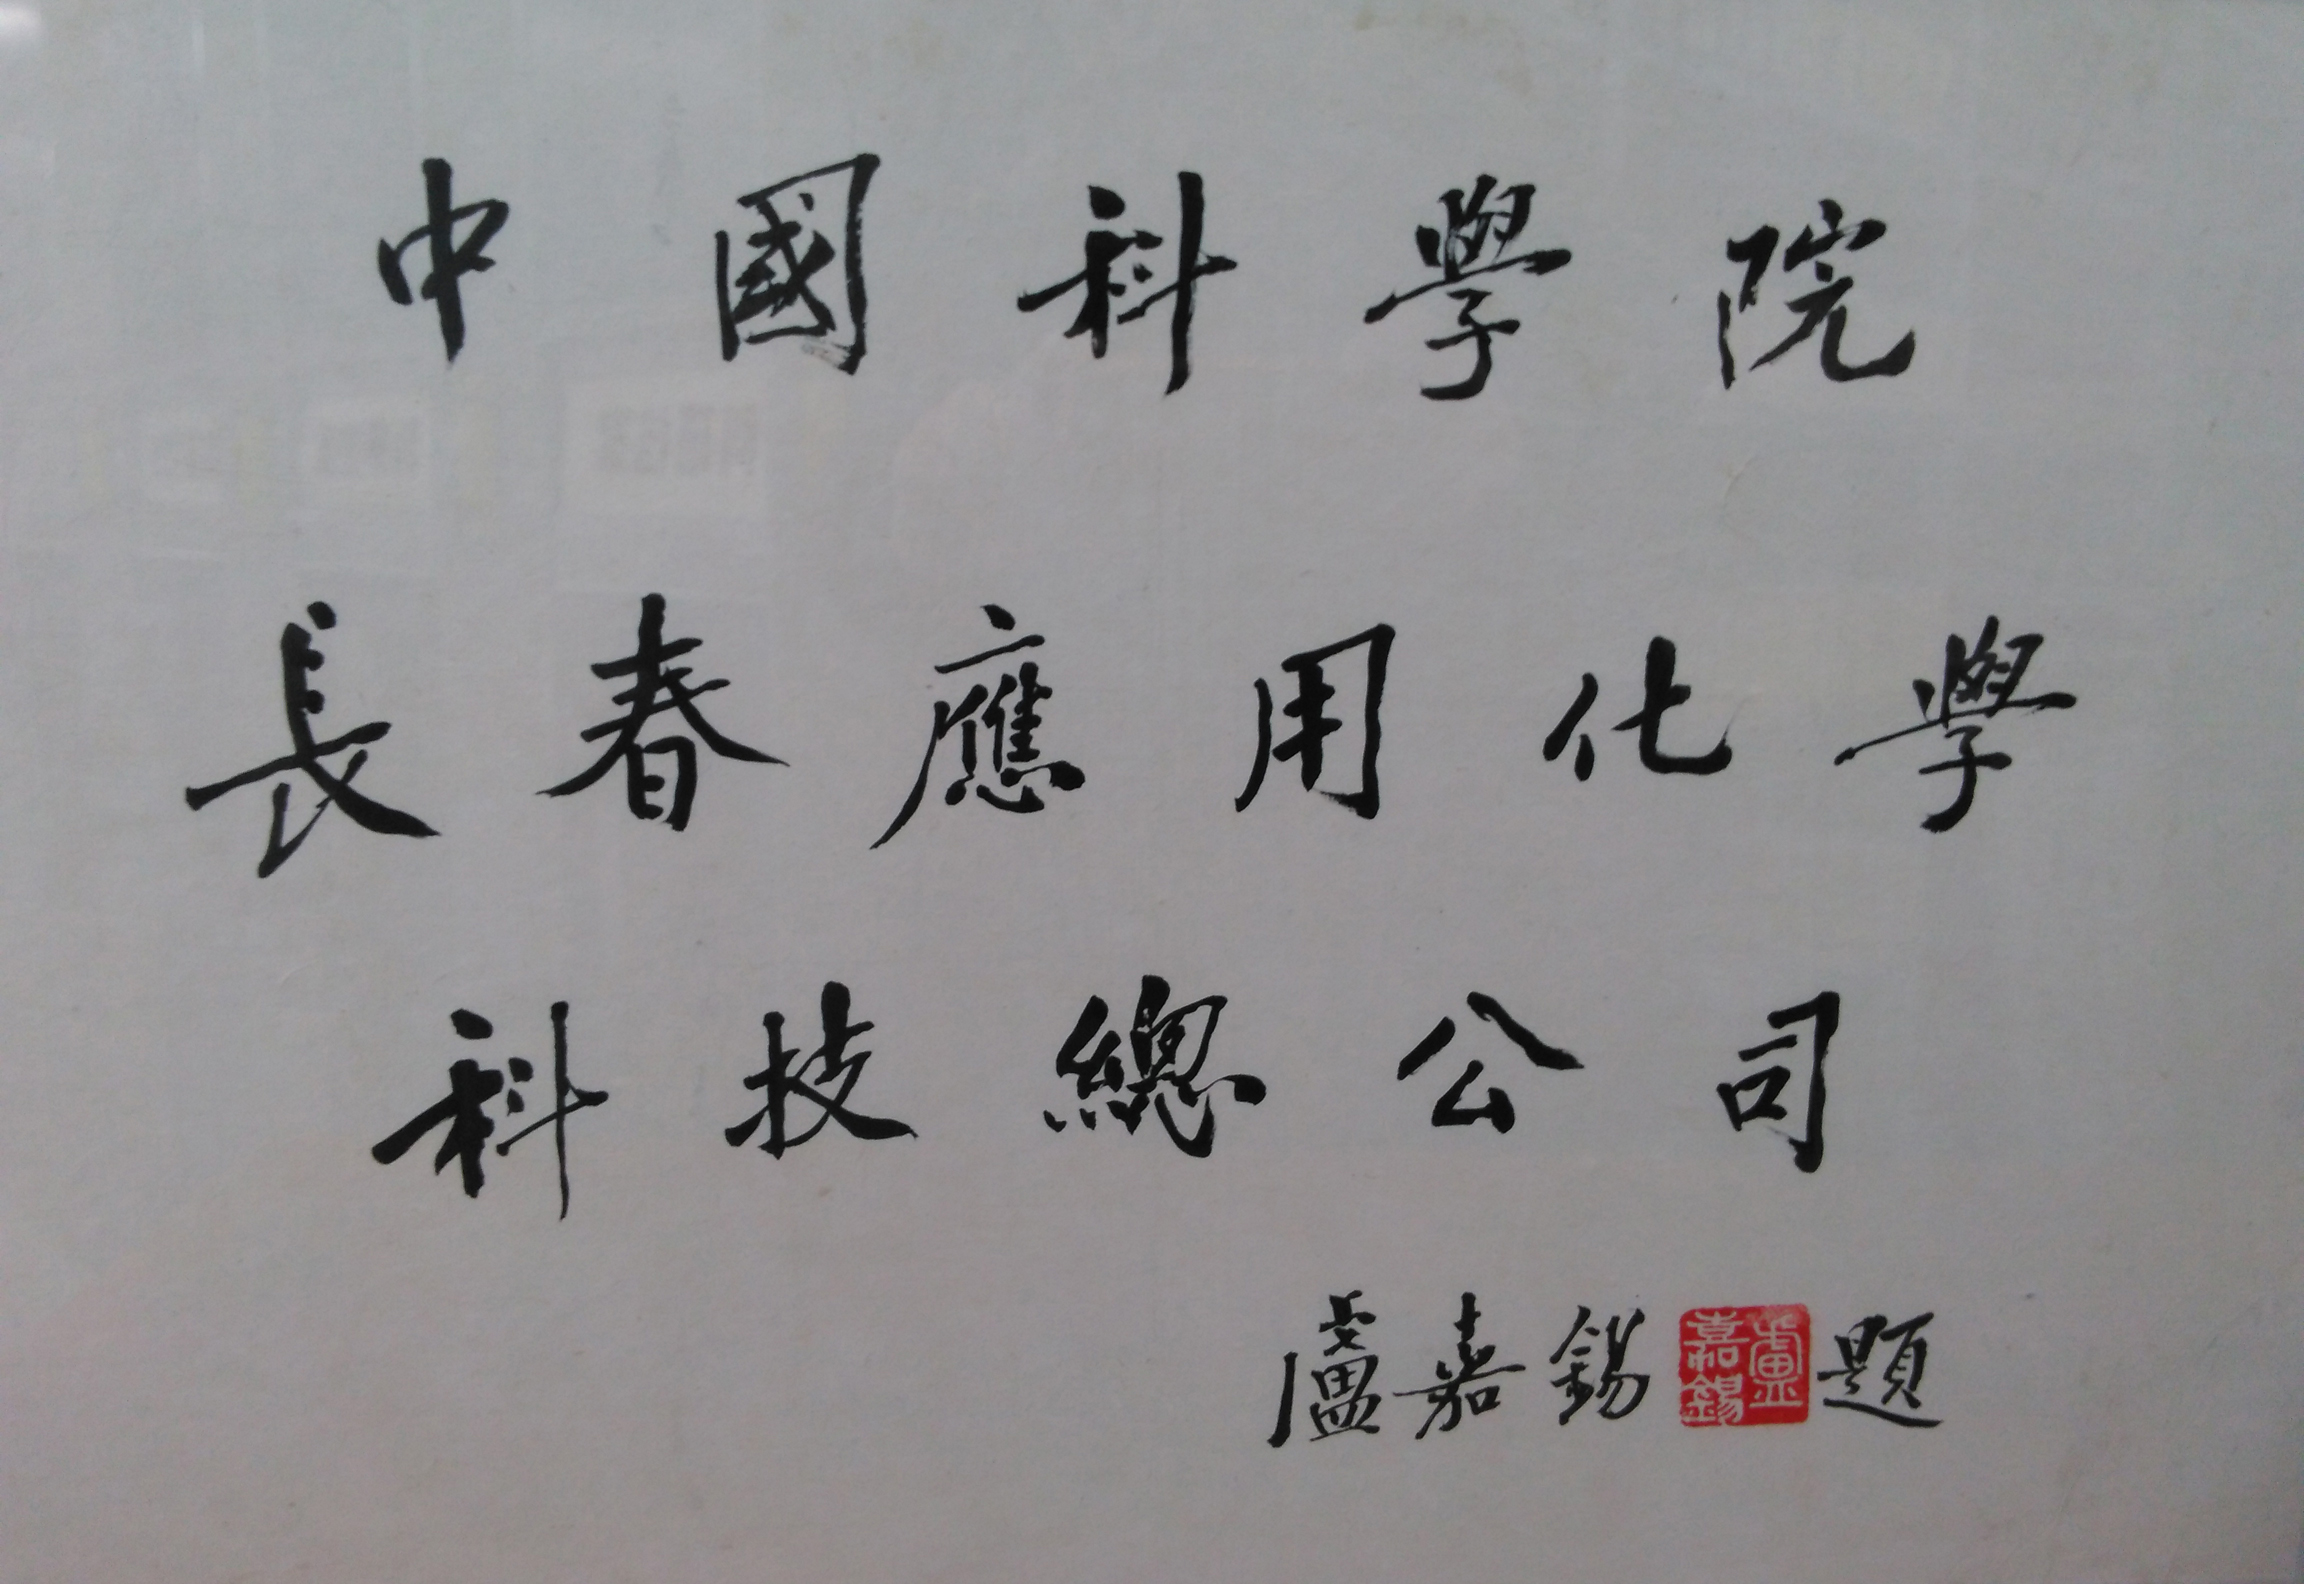 中國科學院
長春應用化學
科技總公司
盧嘉錫 盧嘉錫 題